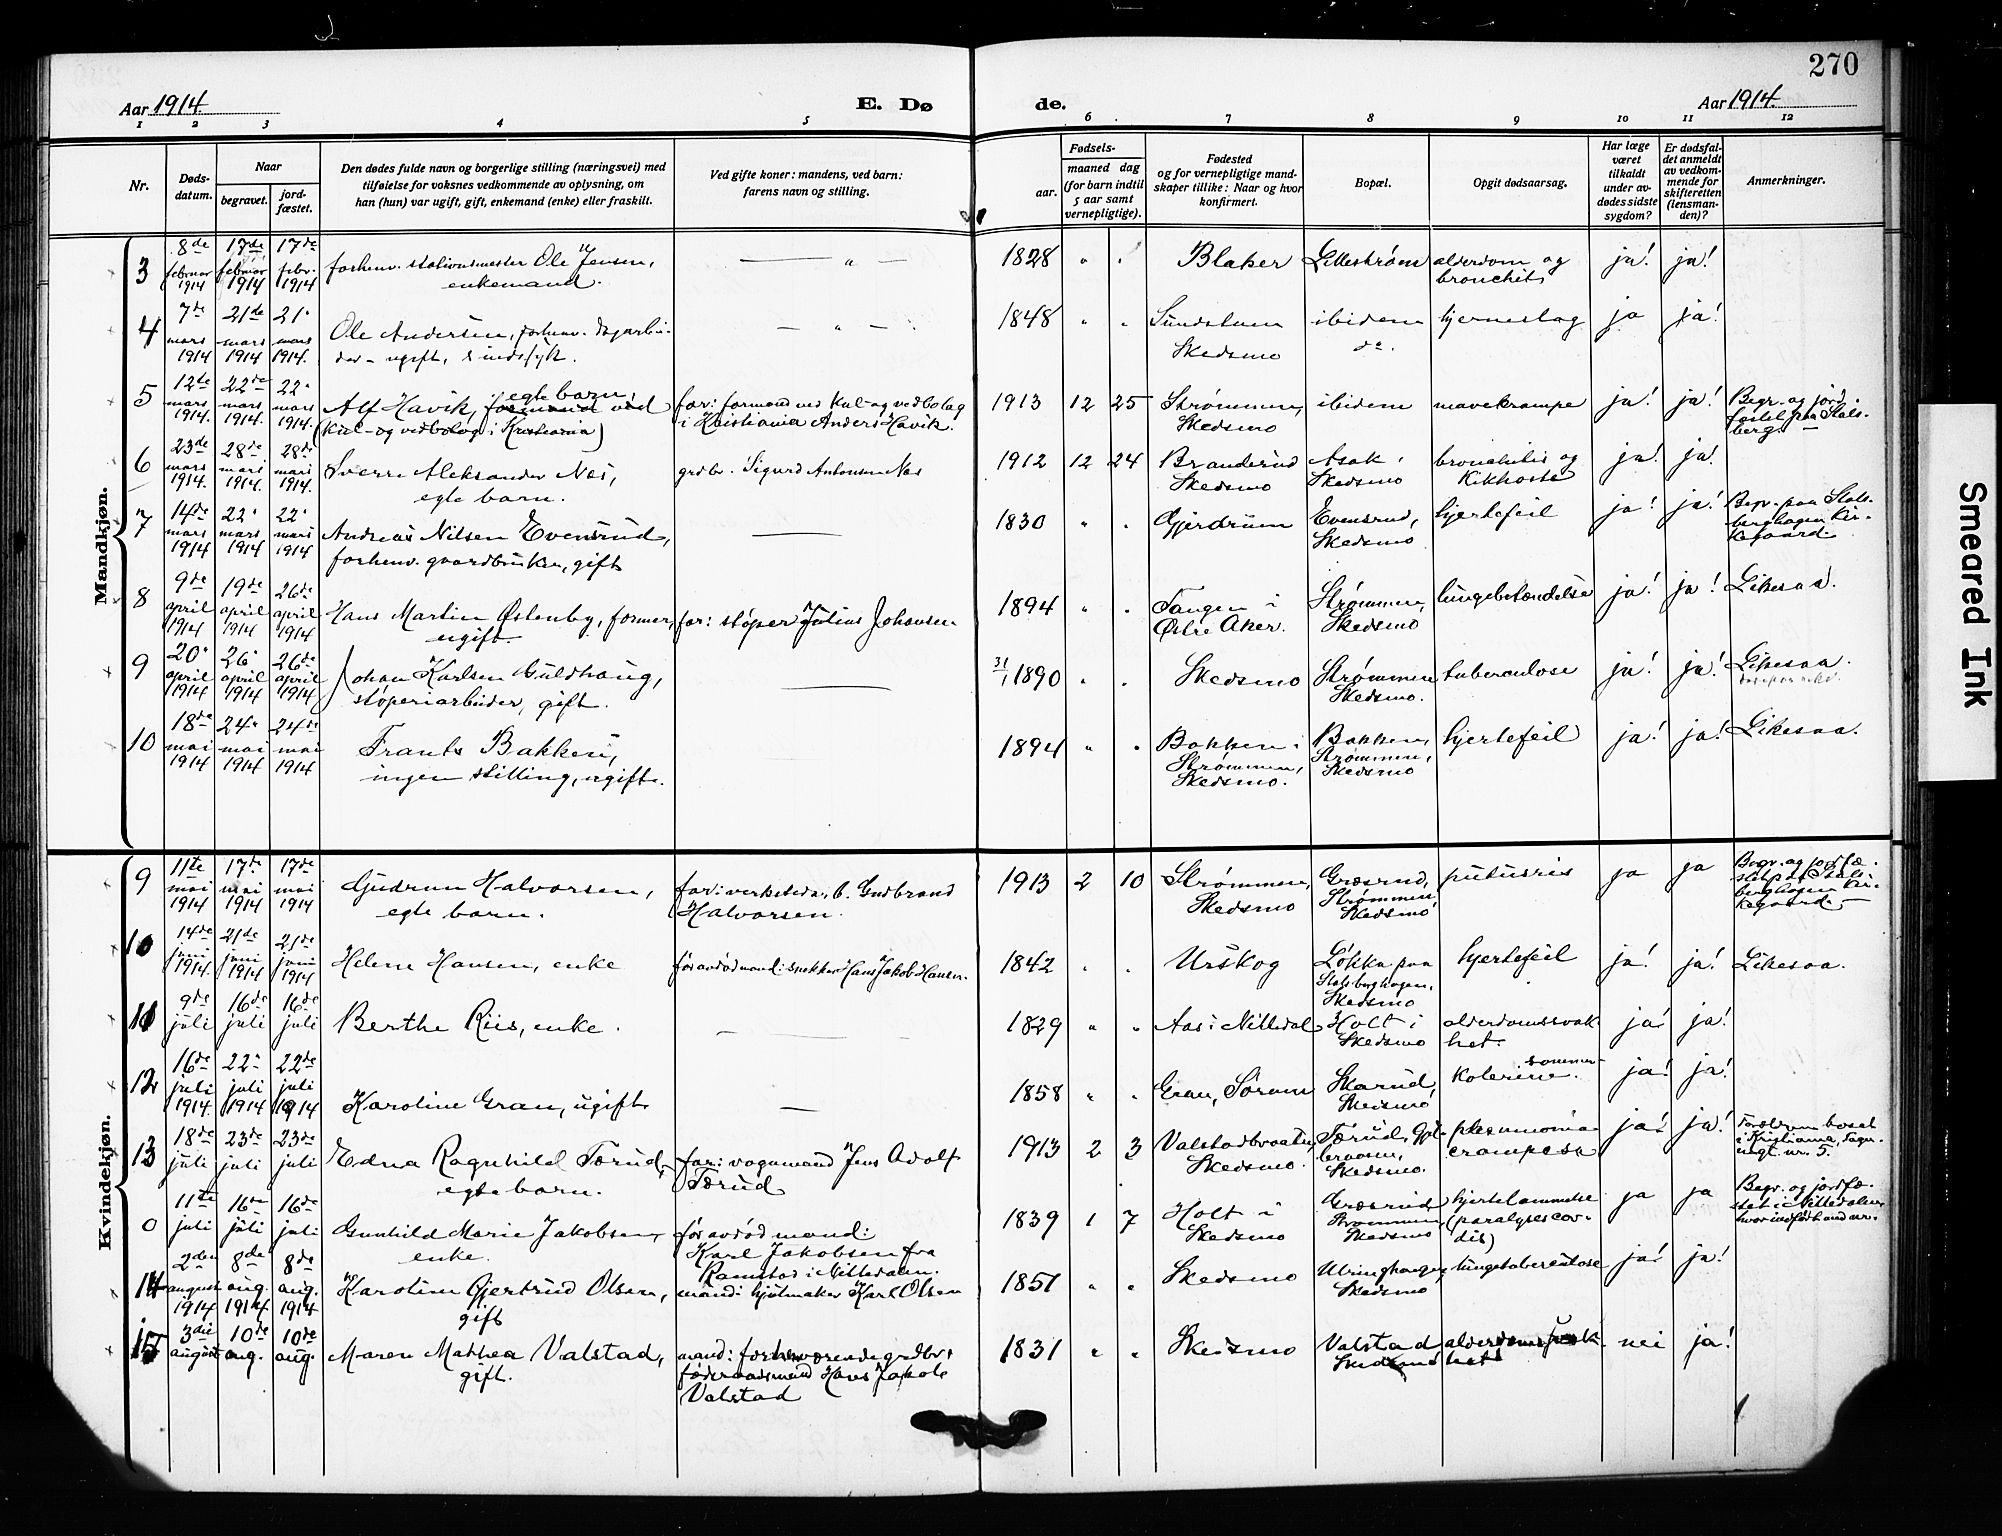 270
Aar 1914.
E. Dø
de.
Aar 1914.
1 2 3 4 5 6 7 8 9 10 11 12
Nr.
Døds-
datum.
Naar
begravet.
jord-
fæstet.
Den dødes fulde navn og borgerlige stilling (næringsvei) med
tilføielse for voksnes vedkommende av oplysning, om
han (hun) var ugift, gift, enkemand (enke) eller fraskilt.
Ved gifte koner: mandens, ved barn:
farens navn og stilling.
Fødsels-
aar.
maaned dag
(for barn indtil
5 aar samt
vernepligtige).
Fødested
og for vernepligtige mand-
skaper tillike: Naar og hvor
konfirmert.
Bopæl.
Opgit dødsaarsag.
Har læge
været
tilkaldt
under av-
dødes sidste
sygdom?
Er dødsfal-
det anmeldt
av vedkom-
mende for
skifteretten
(lensman-
den)?
Anmerkninger.
Mandkjøn.
3 8de februar 1914 17de februar 1914 17de febr. 1914 forhenv. stationsmester Ole Jensen,
enkemand. — " — 1828 " . Blaker Lillestrøm alderdom og
bronchit ja! ja!
4 7de mars 1914 21de mars 1914 21. mars 1914. Ole Andersen, forhenv. dagarbei-
der - ugift, sindssyk. — " — 1848 " " Skedsmo ibidem
do. hjerneslag ja ja!
5 12te mars 1914. 22de mars 1914. 22. mars 1914. Alf Havik, egte barn, formand ved
(kul- og vedbolag i Kristiania) far: formand ved Kul- og vedbolag
i Kristiania Anders Havik. 1913 12 25 Strømmen,
Skedsmo ibidem mavekrampe ja! ja! Begr. og jord-
fæstet paa Stals-
berg. —
6 23de mars 1914. 28de mars 1914. 28de mars 1914. Sverre Aleksander Næs,
egte barn. grdbr. Sigurd Antonsen Næs 1912 12 24 Branderud
Skedsmo Asak,
Skedsmo bronchitis og
Kikhoste ja! ja!
7 14de mars 1914 22. mars 1914 22. mars 1914 Andreas Nilsen Evensrud,
forhenv. gaardbruker, gift — 1830 " . Gjerdrum Evensrud,
Skedsmo hjertefeil ja! ja! Begr. paa Stals-
berghagen kir-
kegaard.
8 9de april 1914 19de april 1914 26de april 1914 Hans Martin Østenby, former,
ugift. far: støper Julius Johansen 1894 " . Tangen i
Østre Aker. Strømmen,
Skedsmo lungebetændelse ja! ja! Likesaa.
9 20. april 1914 26. april 1914 26de april 1914 Johan Karlsen Guldhaug,
støperiarbeider, gift. — 31/1 1890 " . Skedsmo Strømmen
Skedsmo. tuberculose ja! ja! Likesaa.
10 18de mai 1914 24. mai 1914 24de mai 1914 Frants Bakken,
ingen stilling, ugift. 1894 " . Bakken i
Strømmen,
Skedsmo. Bakken,
Strømmen,
Skedsmo hjertefeil ja! ja! Likesaa.
Kvindekjøn.
9 11te mai 1914 17de mai 1914 17de mai 1914 Gudrun Halvorsen,
egte barn. far: verkstedsarb. Gudbrand
Halvorsen. 1913 2 10 Strømmen,
Skedsmo Græsrud,
Strømmen,
Skedsmo ja ja Begr. og jordfæ-
stet paa Stals-
berghagen kir-
kegaard. —
10 14de juni 1914. 21de juni 1914 21de juni 1914 Helene Hansen, enke før avdød mand: snekker Hans Jakob Hansen. 1842 " . Urskog Løkka paa
Stalsberghagen,
Skedsmo hjertefeil ja! ja! Likesaa.
11 9de juli 16de juli 16de juli Berthe Riis, enke. — 1829 " " Aas i Nittedal Holt i
Skedsmo alderdomssvak-
het. ja! ja!
12 16de juli 1914. 22. juli 1914 22de juli 1914 Karoline Gran, ugift — 1858 " . Gran, Sørum Skarud,
Skedsmo sommer-
kolerine. ja! ja!
13 18de juli 23de juli 23de juli Edna Ragnhild Tærud,
egte barn. far: vognmand Jens Adolf
Tærud 1913 2 3 Valstadbraaten
Skedsmo. Tærud,
Skedsmo. pleumonia
crouposa ja! ja! Forældrene bosat
i Kristiania,
nr. 5.
0 11te juli 16de juli 16de juli Gunhild Marie Jakobsen,
enke. før avdød mand:
Karl Jakobsen fra
Ramstad i Nittedalen. 1839 1 7 Holt i
Skedsmo Græsrud
Strømmen
Skedsmo hjertelammelse
(paralyses cor-
dis) ja ja Begr. og jordfæ-
stet i Nittedalen,
hvor indført under nr.
14 2den august 1914 8de aug. 1914 8de aug. 1914 Karoline Gjertrud Olsen,
gift mand: hjulmaker Karl Olsen 1851 " . Skedsmo
Skedsmo lungetuberculose ja! ja!
15 3die august 10de aug. 10de aug. Maren Mathea Valstad,
gift. mand: forhenværende grdbr.
føderaadsmand Hans Jakob
Valstad 1831 " " Skedsmo Valstad
Skedsmo alderdomssvak-
het nei ja!
Smeared Ink